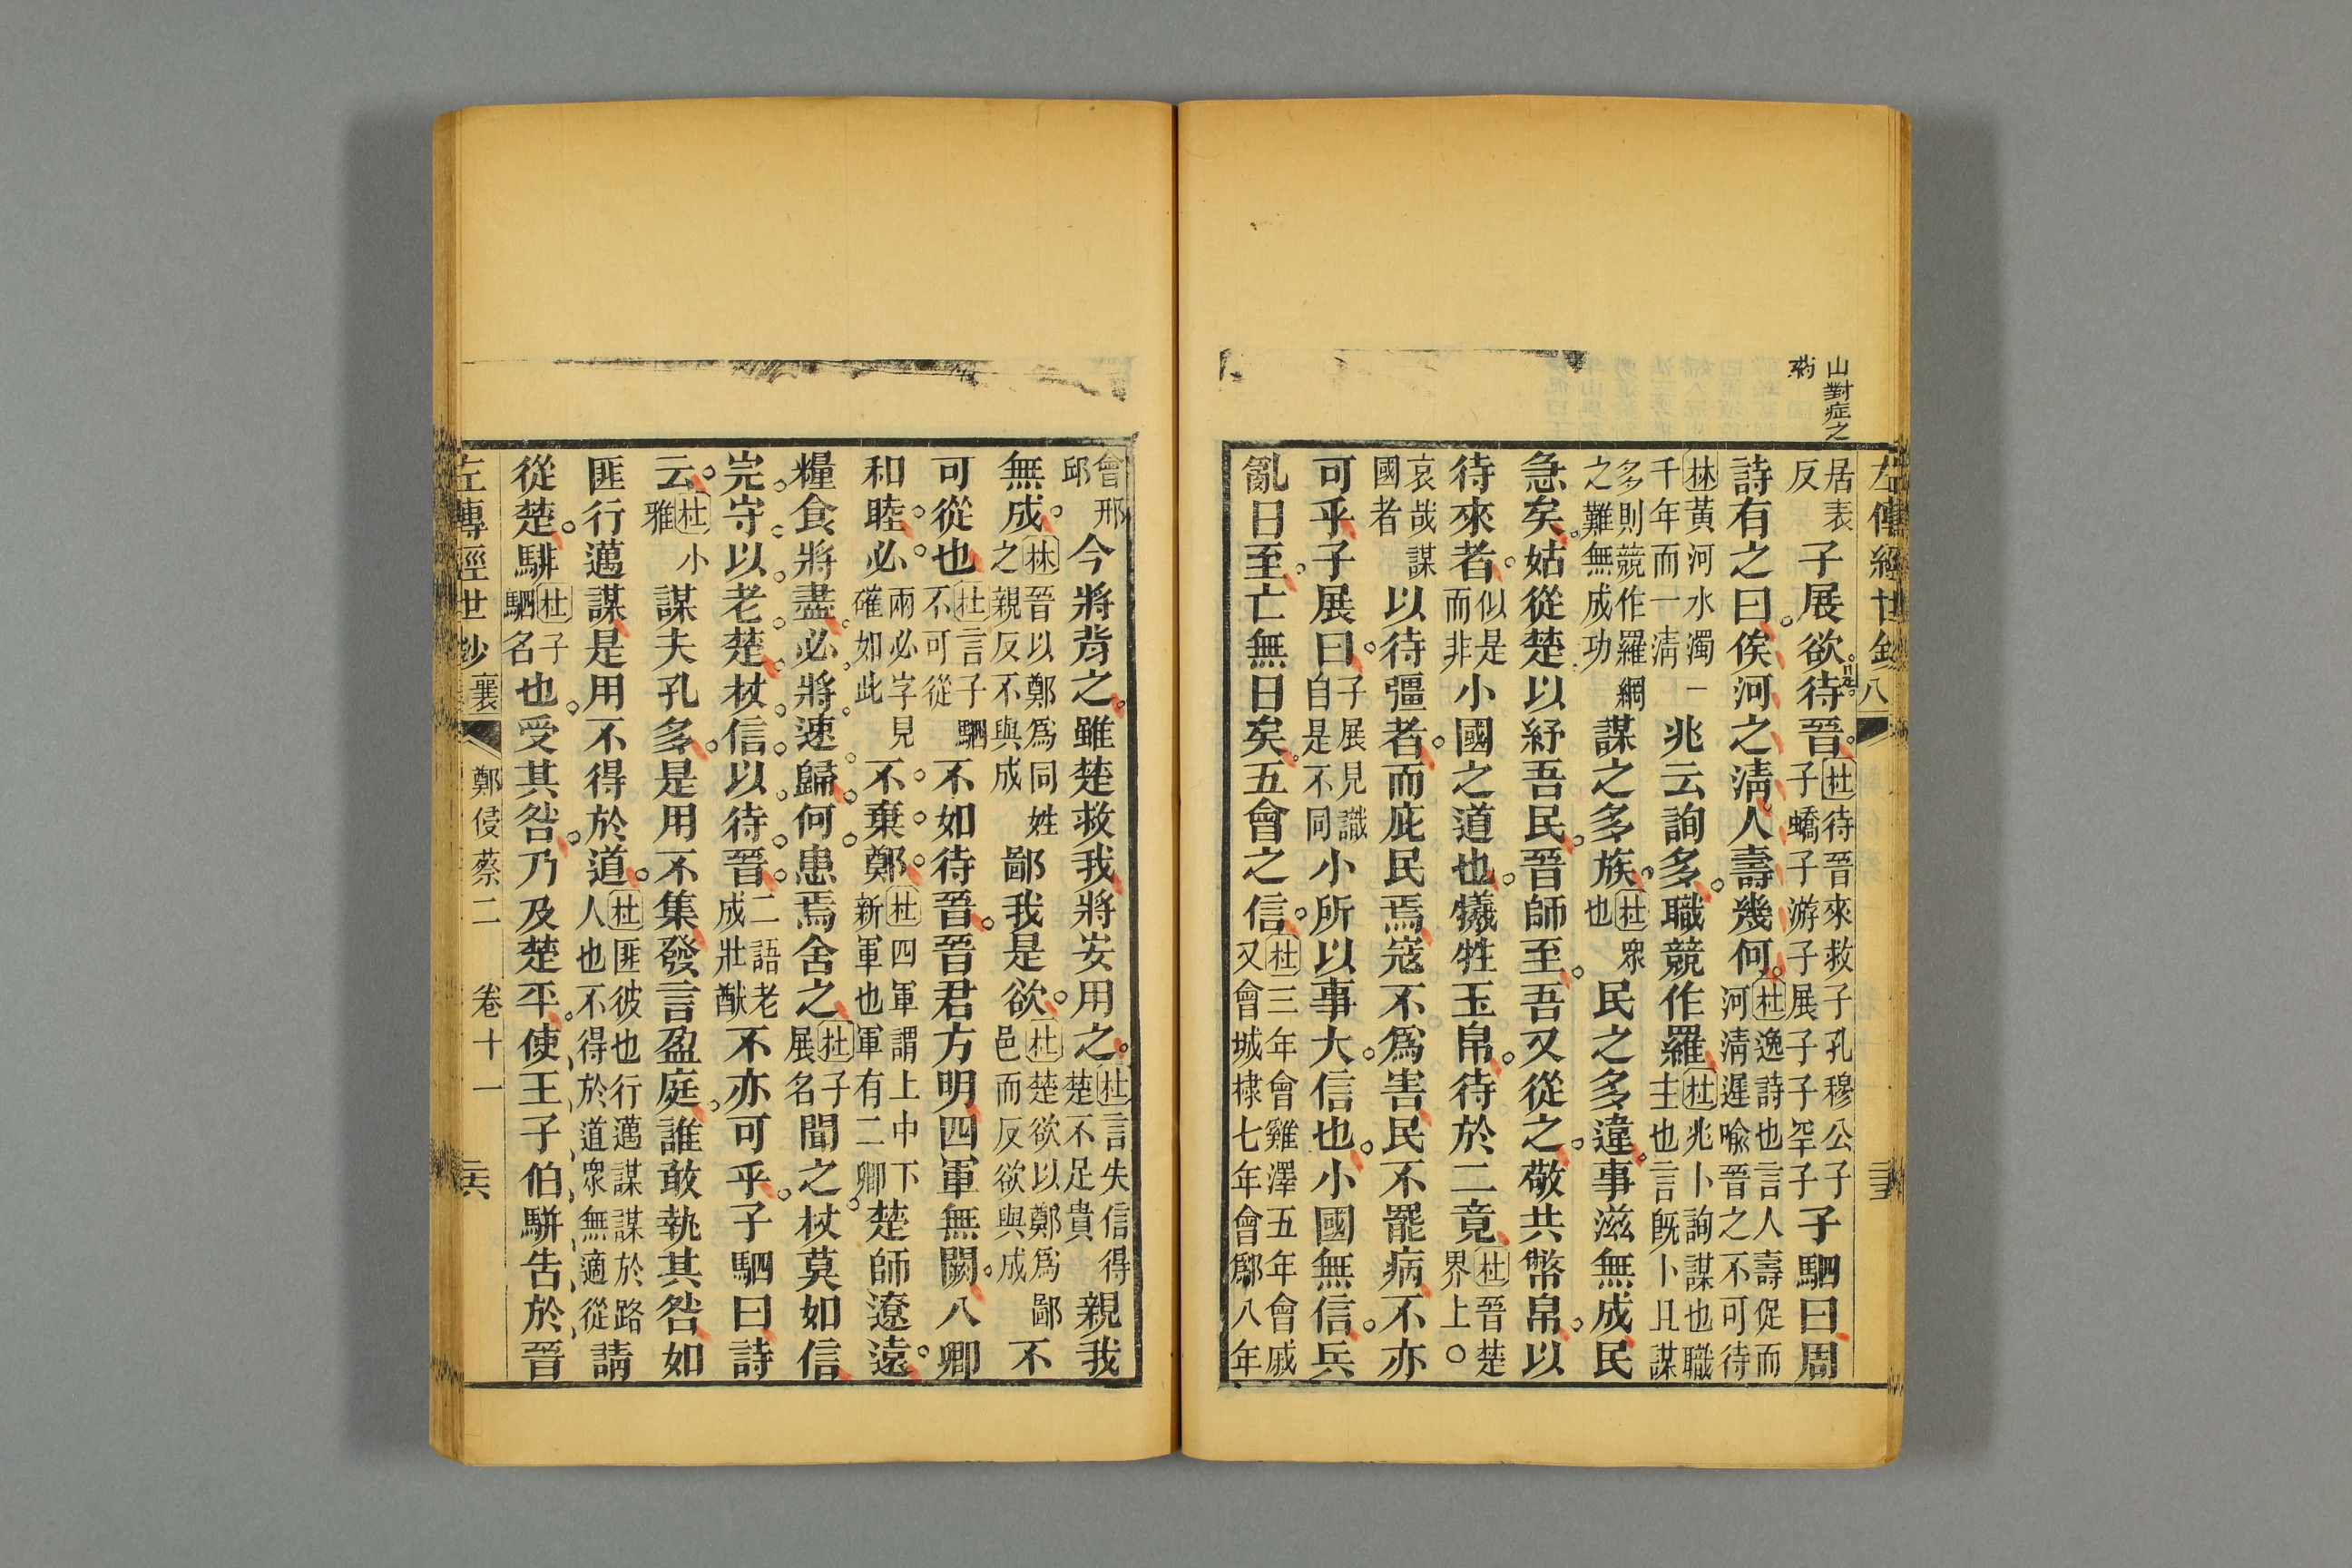 山對症之
药
左傳經世鈔 八
居表反子展欲待晉杜待晉來救子孔穆公子子蟜子游子展子罕子子駟曰周
詩有之曰俟河之淸人壽幾何杜逸詩也言人壽促而河淸遲喻晉之不可待
林黃河水濁一千年而一淸兆云詢多職競作羅杜兆卜詢謀也職主也言旣卜且謀
多則競作羅網之難無成功謀之多族杜衆也民之多違事滋無成民
急矣姑從楚以紓吾民晉師至吾又從之敬共幣帛以
待來者似是而非小國之道也犧牲玉帛待於二竟杜晉楚界上
哀哉謀國者以待彊者而庇民焉寇不爲害民不罷病不亦
可乎子展曰子展見識自是不同小所以事大信也小國無信兵
亂日至亡無日矣五會之信杜三年會雞澤五年會戚又會城棣七年會鄬八年
會邢邱今將背之雖楚救我將安用之杜言失信得楚不足貴親我
無成林晉以鄭爲同姓之親反不與成鄙我是欲杜楚欲以鄭爲鄙邑而反欲與成不
可從也杜言子駟不可從不如待晉晉君方明四軍無闕八卿
和睦必兩必字見確如此不棄鄭杜四軍謂上中下新軍也軍有二卿楚師遼遠
糧食將盡必將速歸何患焉舍之杜子展名聞之杖莫如信
完守以老楚杖信以待晉二語老成壯猷不亦可乎子駟曰詩
云杜小雅謀夫孔多是用不集發言盈庭誰敢執其咎如
匪行邁謀是用不得於道杜匪彼也行邁謀謀於路人也不得於道衆無適從請
從楚騑杜子駟名也受其咎乃及楚平使王子伯駢告於晉
左傳經世鈔 襄 鄭侵蔡二 卷十一